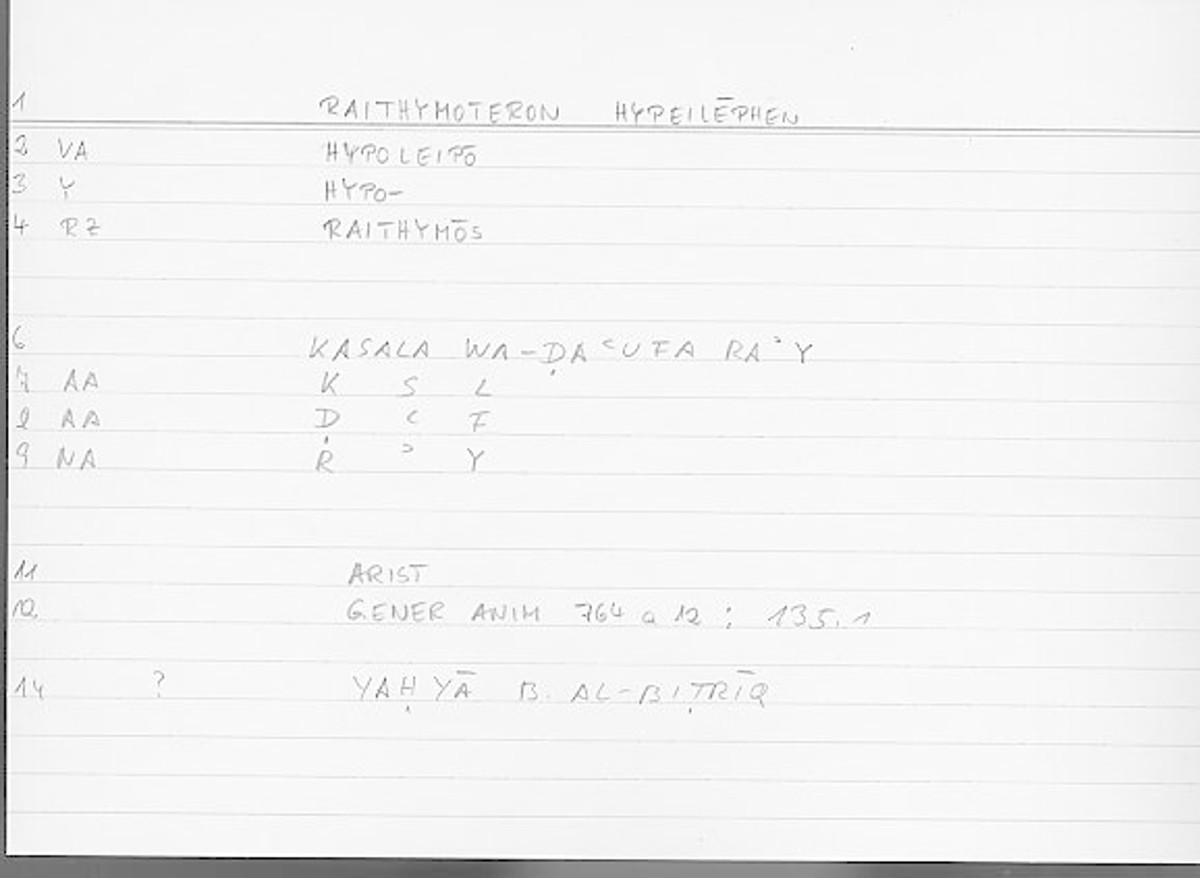 1 RAITHYMOTERON HYPEILĒPHEN
2 VA HYPOLEIPŌ
3 Y HYPO-
4 RZ RAITHYMŌS
6 KASALA WA-ḌAʿUFA RAʾY
7 AA K S L
8 AA Ḍ ʿ F
9 NA R ʾ Y
11 ARIST
12 GENER ANIM 764 a 12 ; 135.1
14 ? YAḤYĀ B. AL-BIṬRĪQ